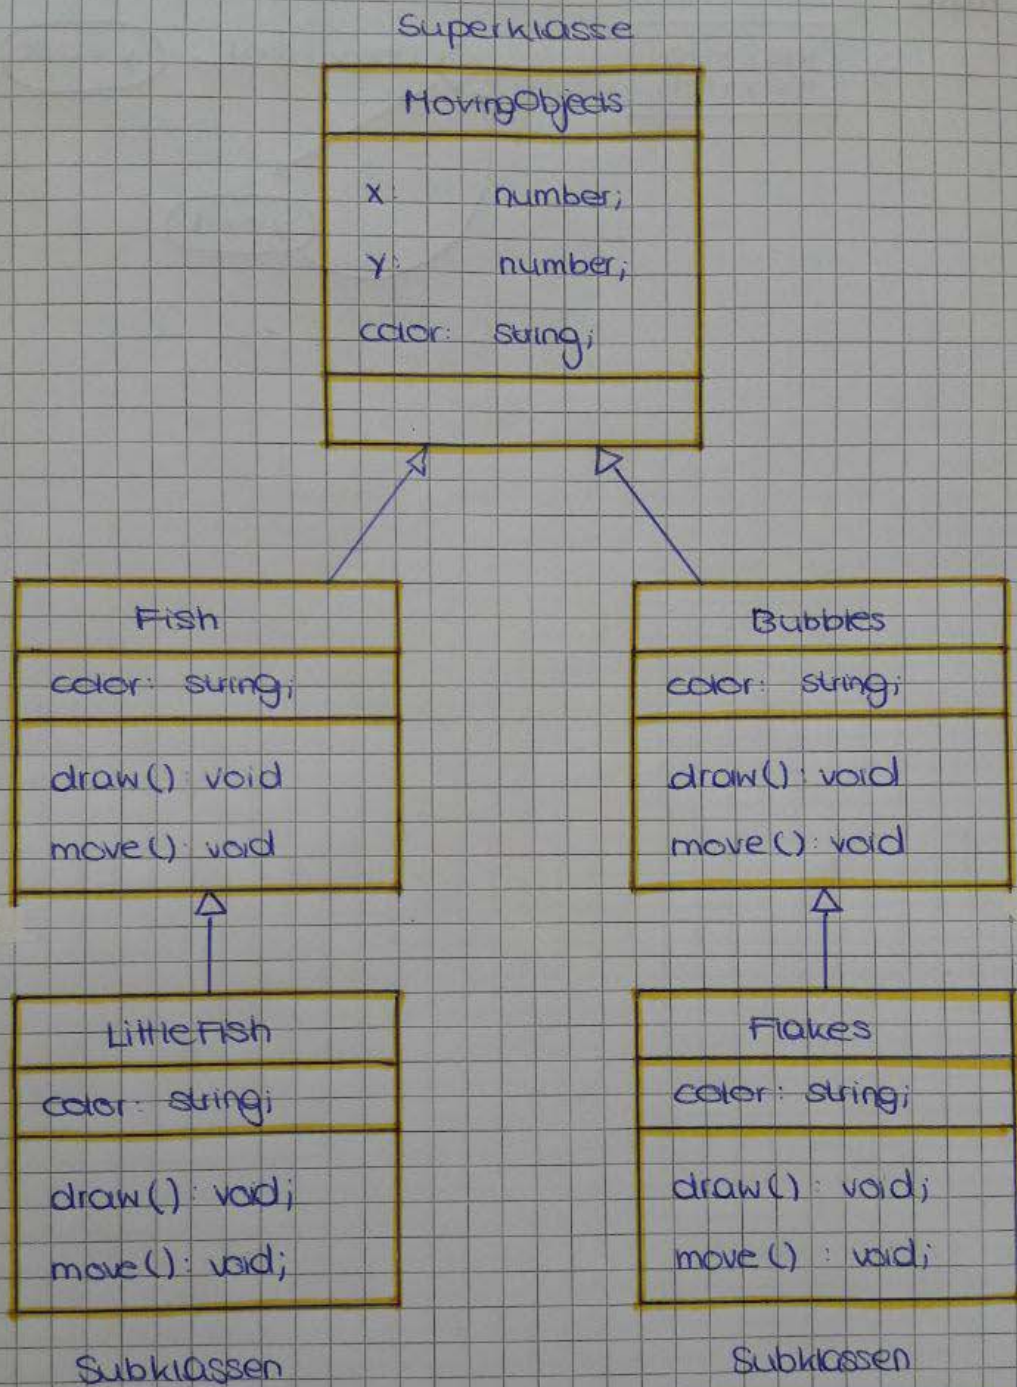 Superklasse
MovingObjects
x: number;
y: number;
color: string;
Fish
color: string;
draw(): void
move(): void
Bubbles
color: string;
draw(): void
move(): void
LittleFish
color: string;
draw(): void;
move(): void;
Subklassen
Flakes
color: string;
draw(): void;
move() : void;
Subklassen